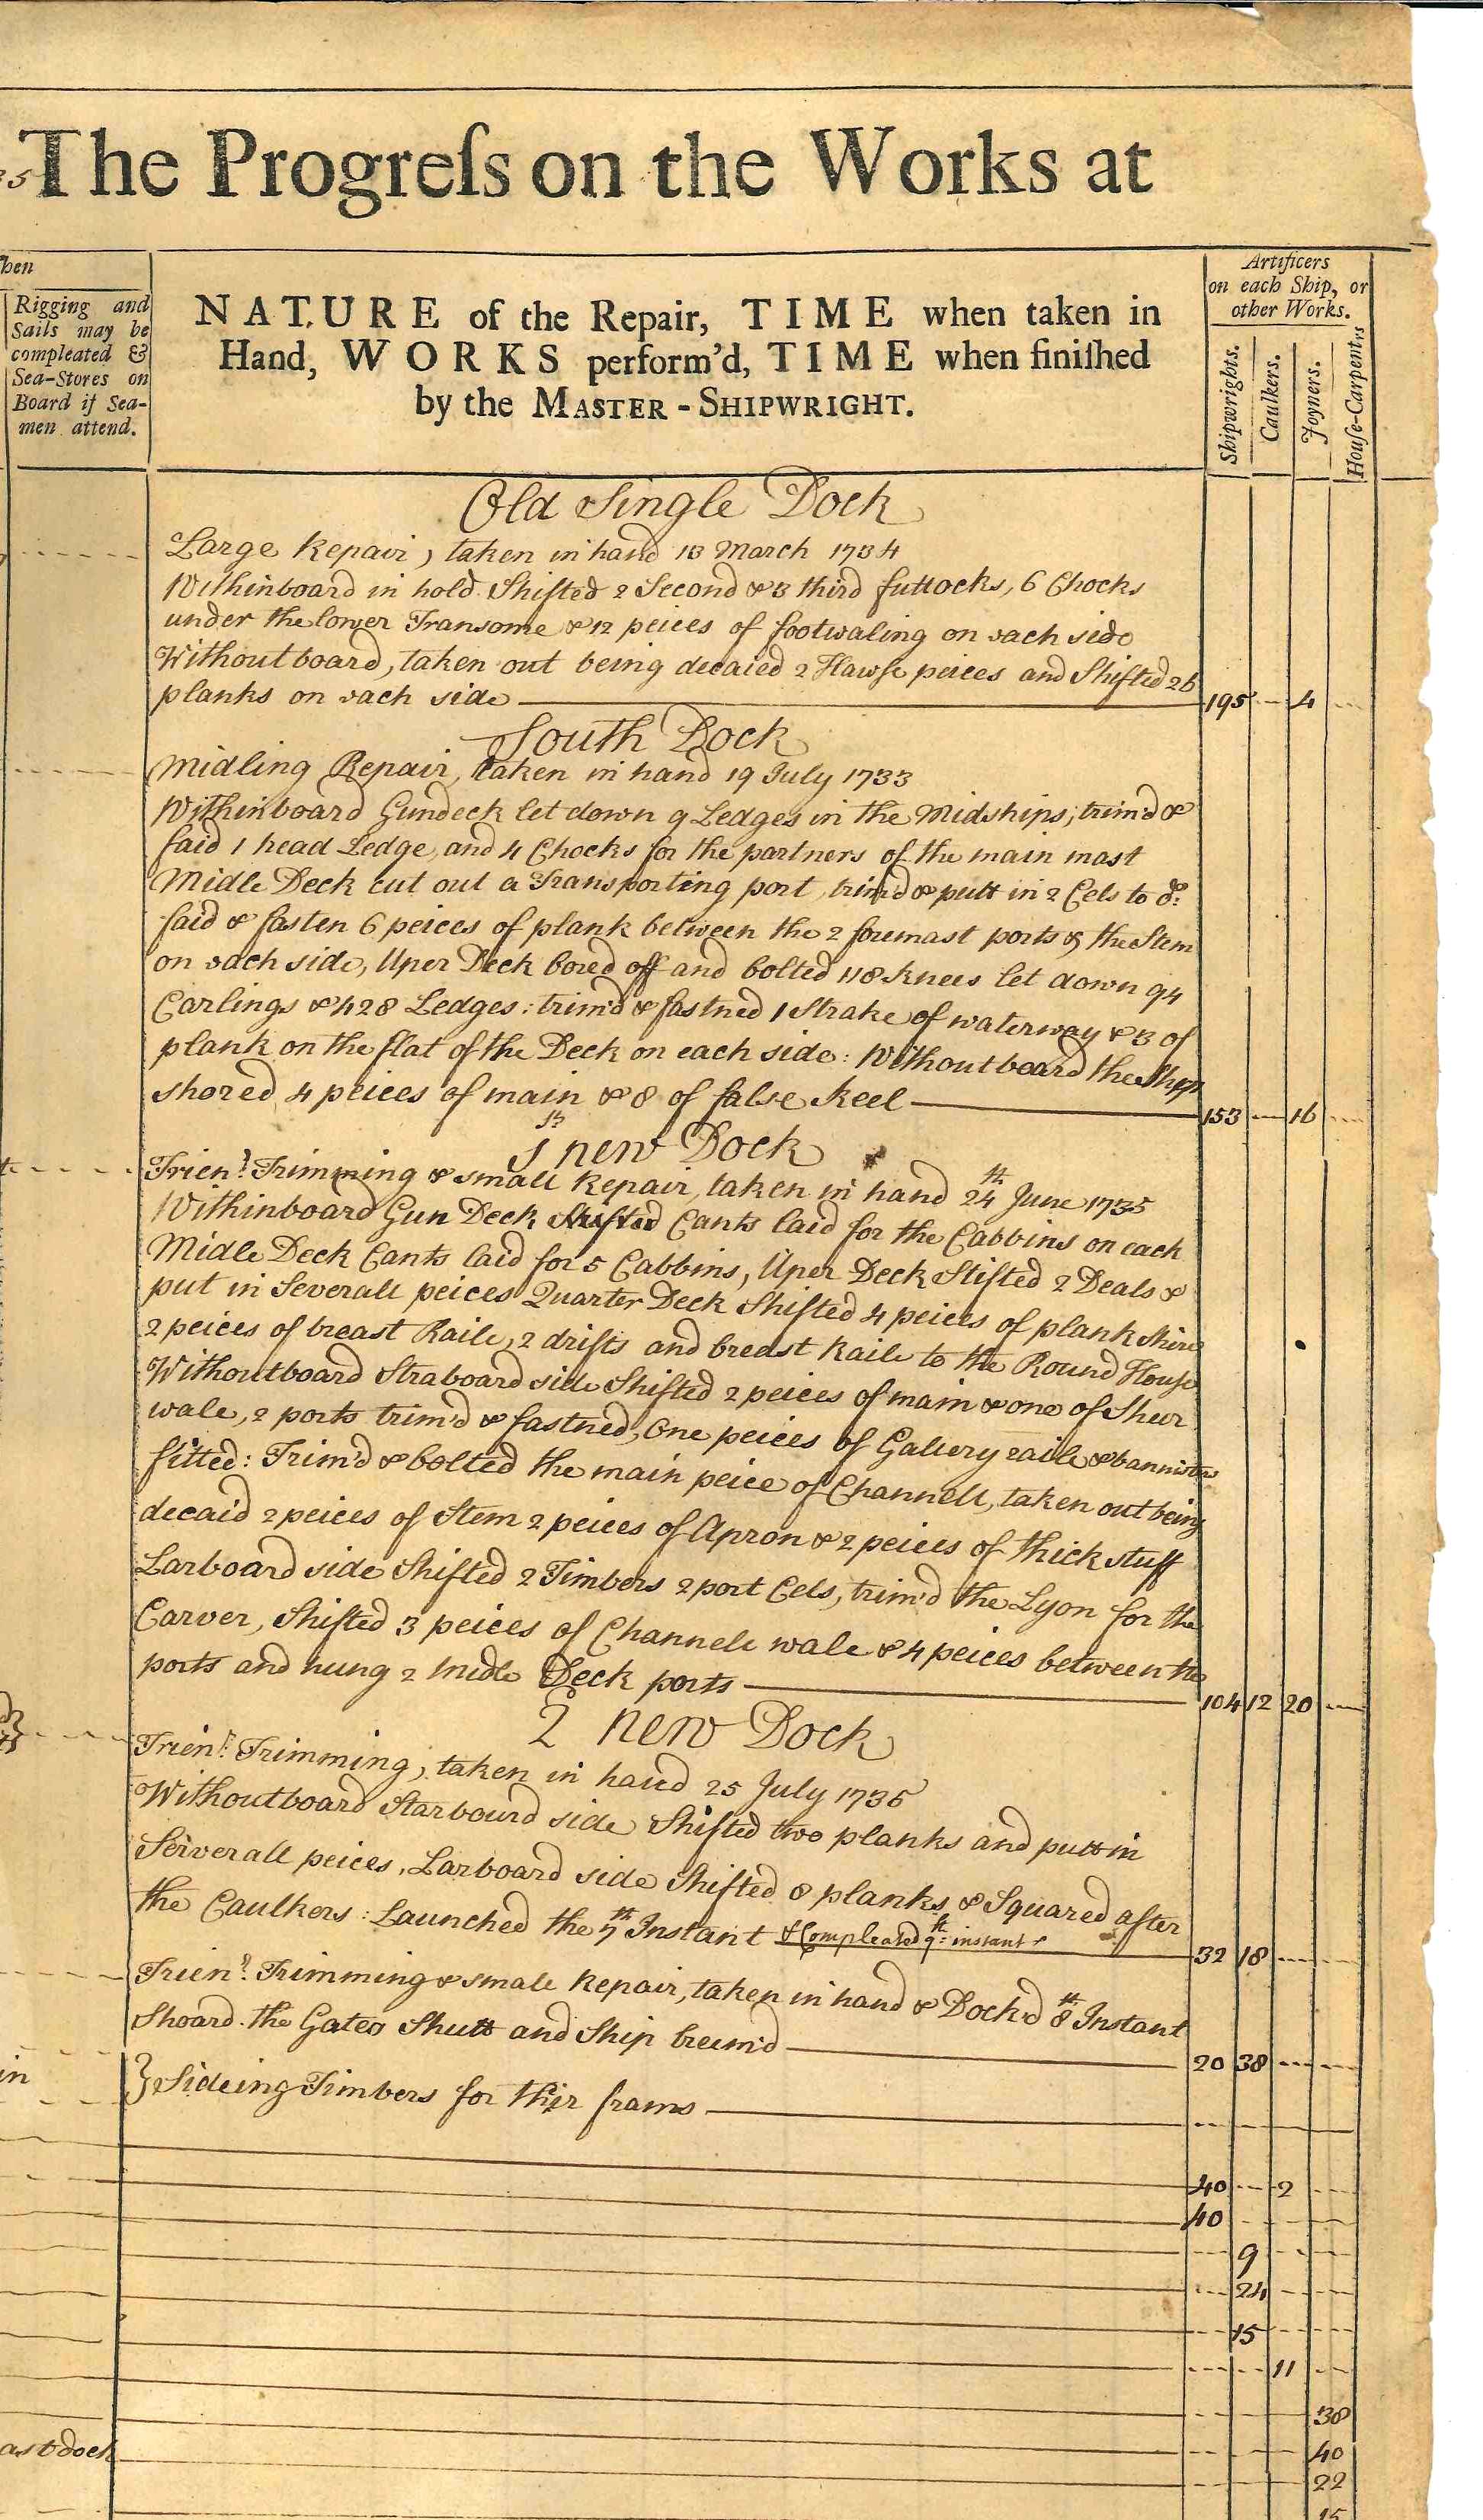 35 The Progreſs on the Works at
hen
Rigging and
Sails may be
compleated &
Sea-Stores on
Board if Sea-
men attend.
NATURE of the Repair, TIME when taken in
Hand, WORKS perform'd, TIME when finiſhed
by the MASTER-SHIPWRIGHT.
Artificers
on each Ship, or
other Works.
Shipwrights.
Caulkers.
Joyners.
Houſe-Carpentrs
Old Single Dock
Large Repair, taken in hand 13 March 1734
Withinboard in hold Shifted 2 Second & 3 third futtocks, 6 Chocks
under the lower Transome & 12 peices of footwaling on each side
Without board, taken out being decaied 2 Hawſe peices and Shifted 26
planks on each side 195 4
South Dock
Midling Repair, taken in hand 19 July 1733
Withinboard Gundeck let down 9 Ledges in the Midships; trim'd &
faid 1 head Ledge, and 4 Chocks for the partners of the main mast
Midle Deck cut out a Transporting port, trim'd & putt in 2 Cels to do:
faid & fasten 6 peices of plank between the 2 foremast ports & the Stem
on each side, Uper Deck bored off and bolted 118 knees let down 94
Carlings & 428 Ledges: trim'd & fastned 1 Strake of waterway & 3 of
plank on the flat of the Deck on each side: Without board the Ship
shored 4 peices of main & 8 of false keel 153 16
1st new Dock
Trienl: Trimming & small Repair, taken in hand 24th June 1735
Withinboard Gun Deck Shifted Cants laid for the Cabbins on each
Midle Deck Cants laid for 5 Cabbins, Uper Deck Stifted 2 Deals &
put in Severall peices Quarter Deck Shifted 4 peices of plank
2 peices of breast Raile, 2 drifts and breast Raile to the Round House
Without board Straboard side Shifted 2 peices of main & one of Sheer
wale, 2 ports trim'd & fastned, One peices of Gallery raile & bannisters
fitted: Trim'd & bolted the main peice of Channell, taken out being
decaid 2 peices of Stem 2 peices of Apron & 2 peices of thick stuff
Larboard side Shifted 2 Timbers 2 port Cels, trim'd the Lyon for the
Carver, Shifted 3 peices of Channele wale & 4 peices between the
ports and hung 2 Midle Deck ports 104 12 20
2d new Dock
Trienl: Trimming, taken in hand 25 July 1735
Without board Starbourd side Shifted two planks and putt in
Seiverall peices, Larboard side Shifted 8 planks & Squared after
the Caulkers: Launched the 7th Instant & Compleated 9th instant 32 18
Trienl: Trimming & smale Repair, taken in hand & Dock'd 8th Instant
Shoard the Gates Shutt and Ship breem'd 20 38
in
} Sideing Timbers for thir frams
40 2
40
9
24
15
11
38
40
ast dock
22
15